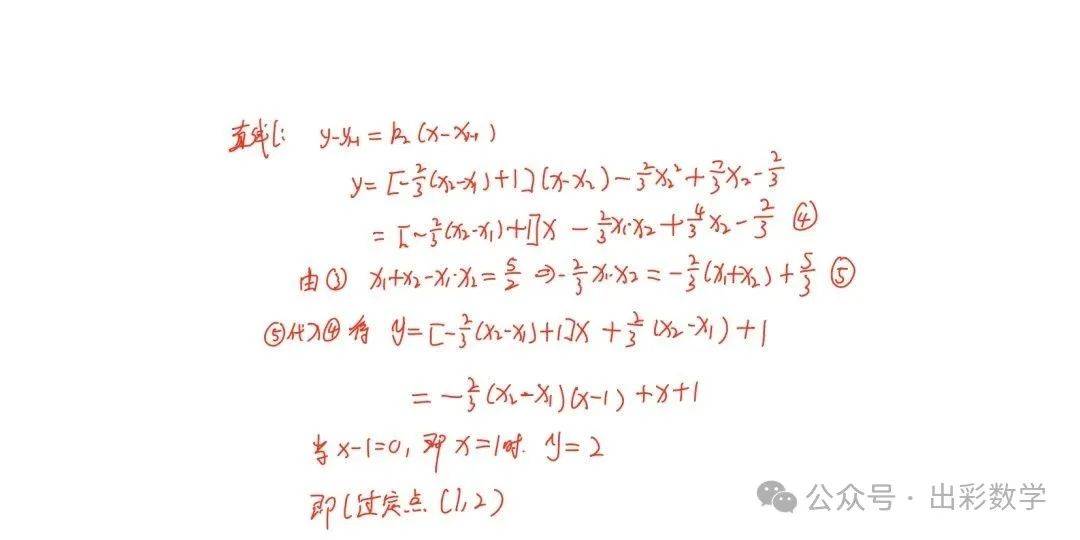 直线l: y-y₋₁=k₂(x-x₋₁)
y=[-2/3(x₂-x₁)+1](x-x₂)-2/3x₂²+7/3x₂-2/3
=[-2/3(x₂-x₁)+1]x-2/3x₁·x₂+4/3x₂-2/3 ④
由③ x₁+x₂-x₁·x₂=5/2⇒-2/3x₁·x₂=-2/3(x₁+x₂)+5/3 ⑤
⑤代入④得 y=[-2/3(x₂-x₁)+1]x+2/3(x₂-x₁)+1
=-2/3(x₂-x₁)(x-1)+x+1
当x-1=0,即x=1时. y=2
即l过定点(1,2)
公众号·出彩数学